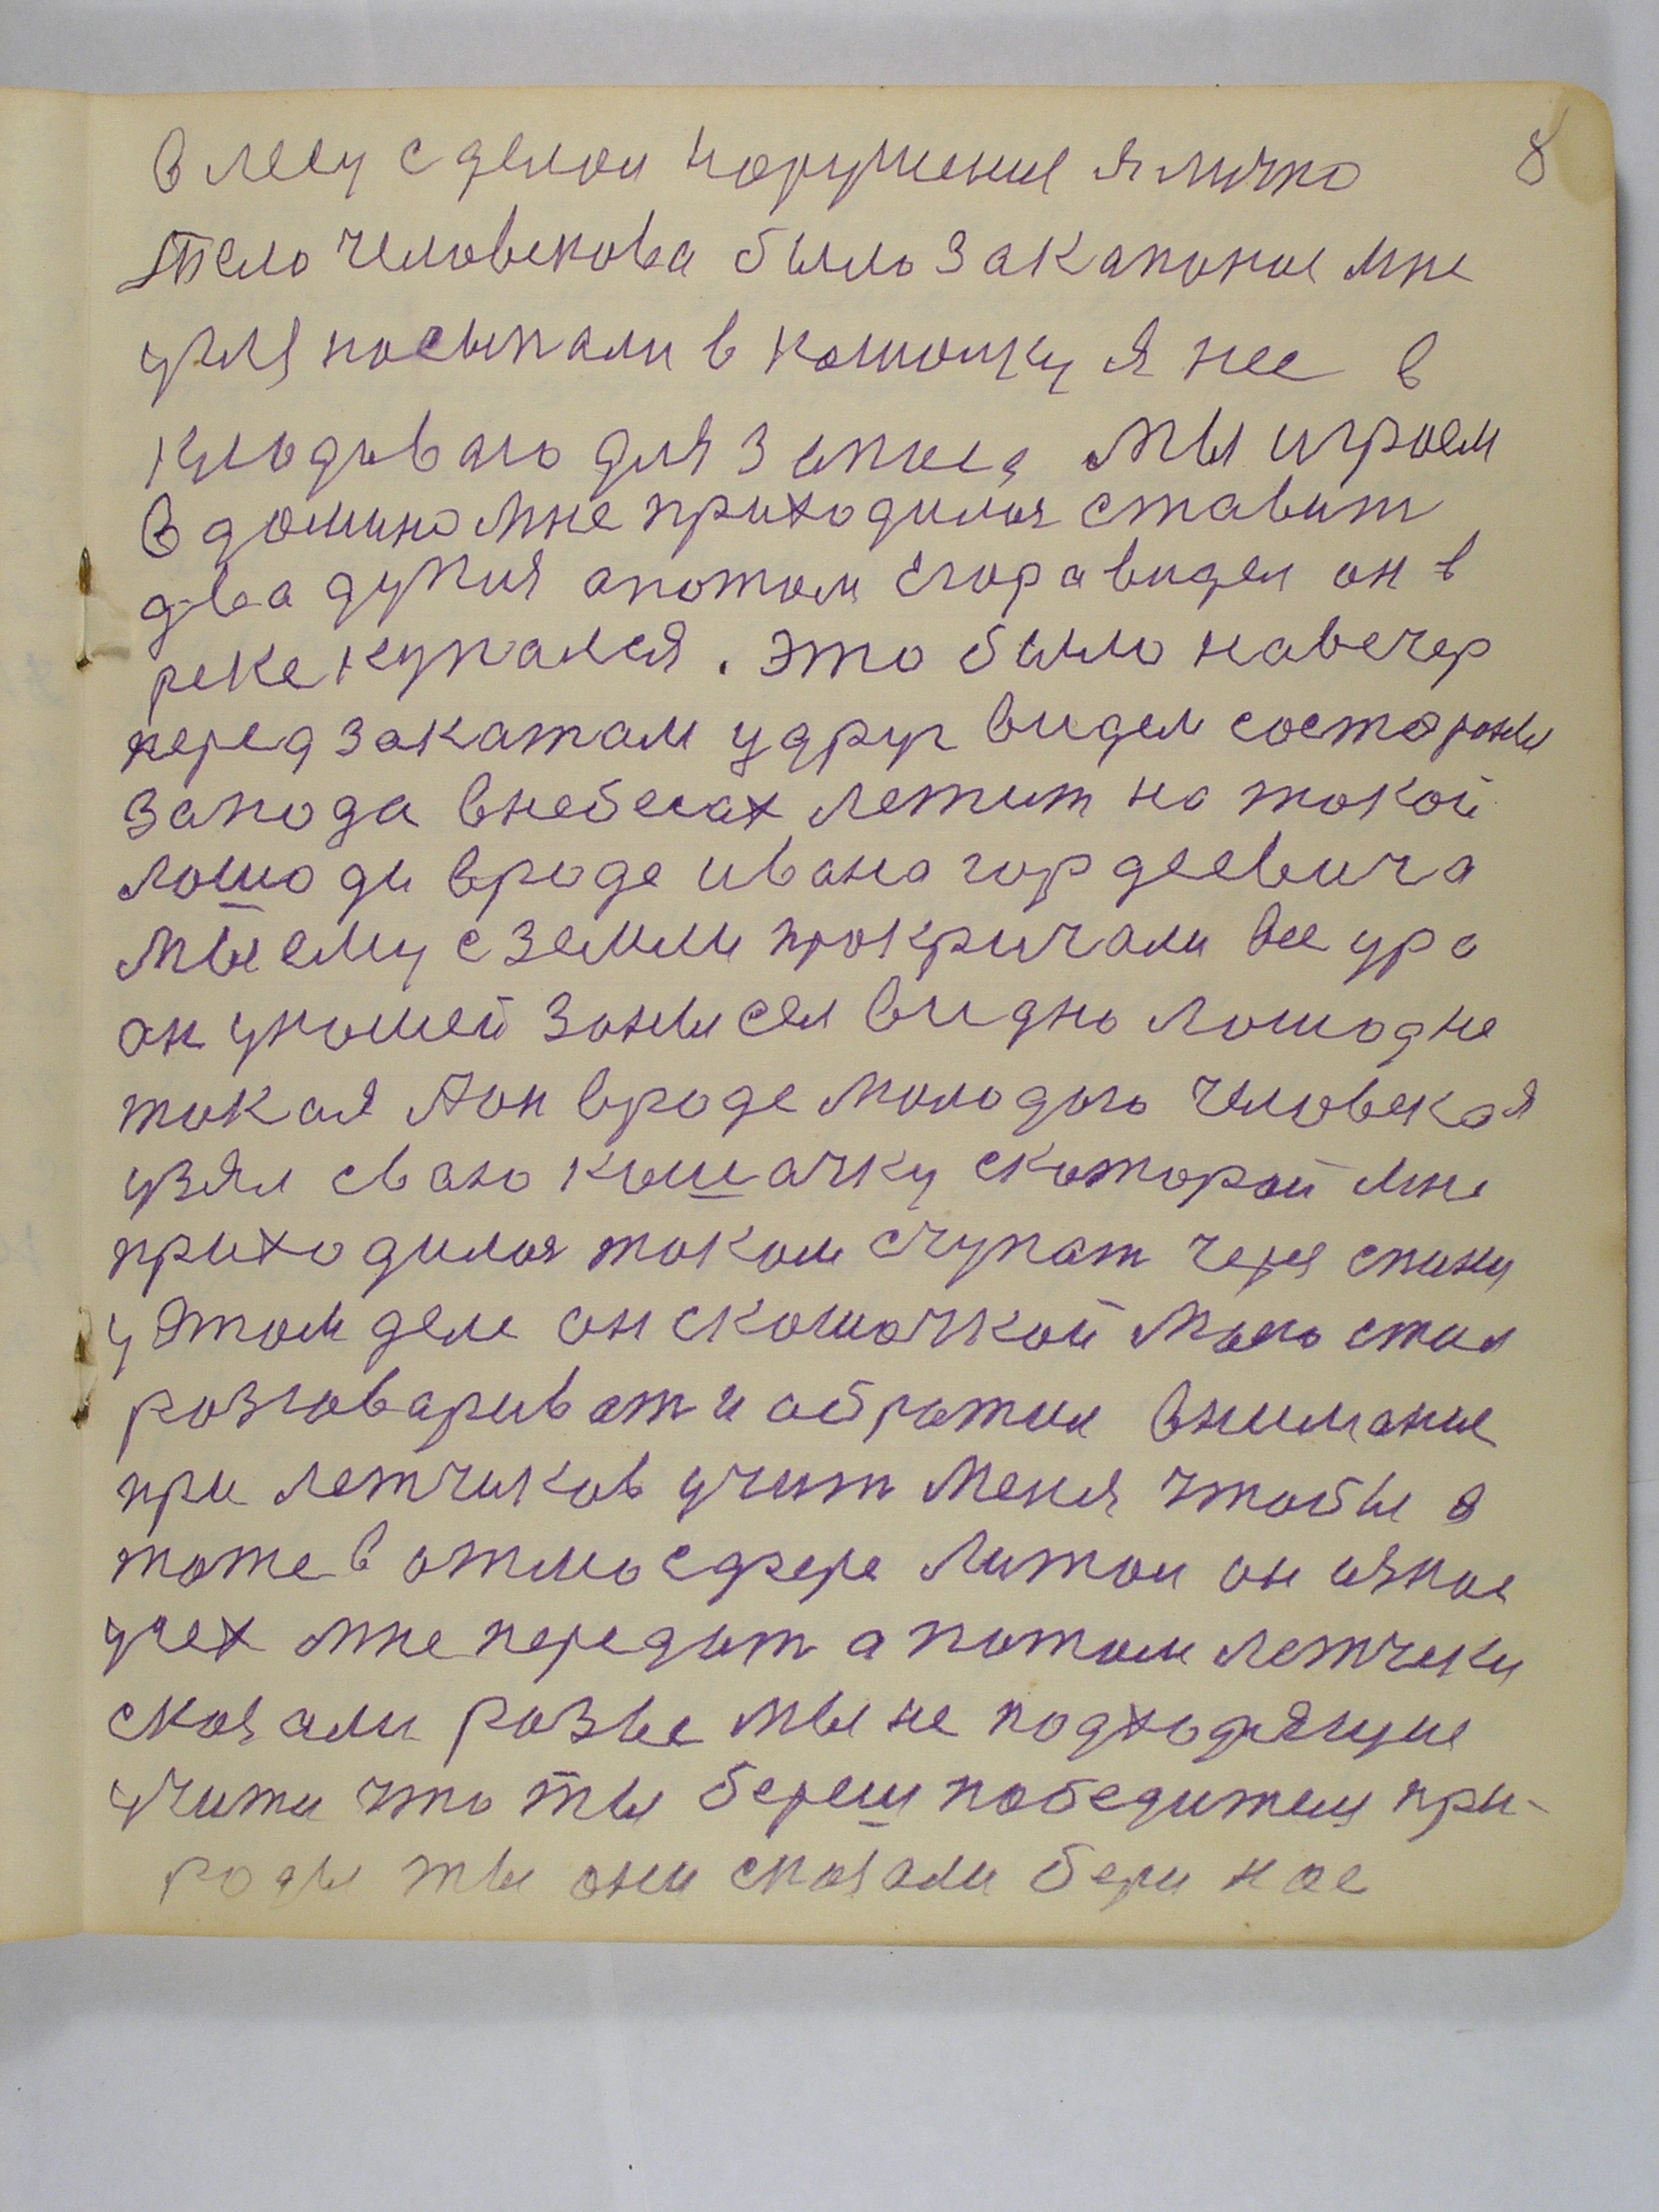 8
В лесу сделал нарушение я лично
Тело человекова было закапоное мне
угля посыпали в кошолку я нее в
кподываю для запаса мы играем
в домино мне приходилоя ставит
два дупля апотом Егора видел он в
реке купался. это было навечер
перед закатам удруг видел состороны
запода внебесах летит на токой
лошоди вроде ивана гордеевича
мы ему с земли прокричали все ура
он унашей зоны сел видно лошодне
токая Аон вроде молодого человекоя
узял сваю кошачку скоторой мне
приходилоя током счупат через спину
у этом деле он скошочкой мало стал
розговариват и обратил внимание
при летчиков учит меня чтобы я
тоже в отмосфере литал он ияное
учех мне передыт а потом летчики
сказали розве мы не подходящие
учити что ты береш победител при-
роды ты они сказали бери нас